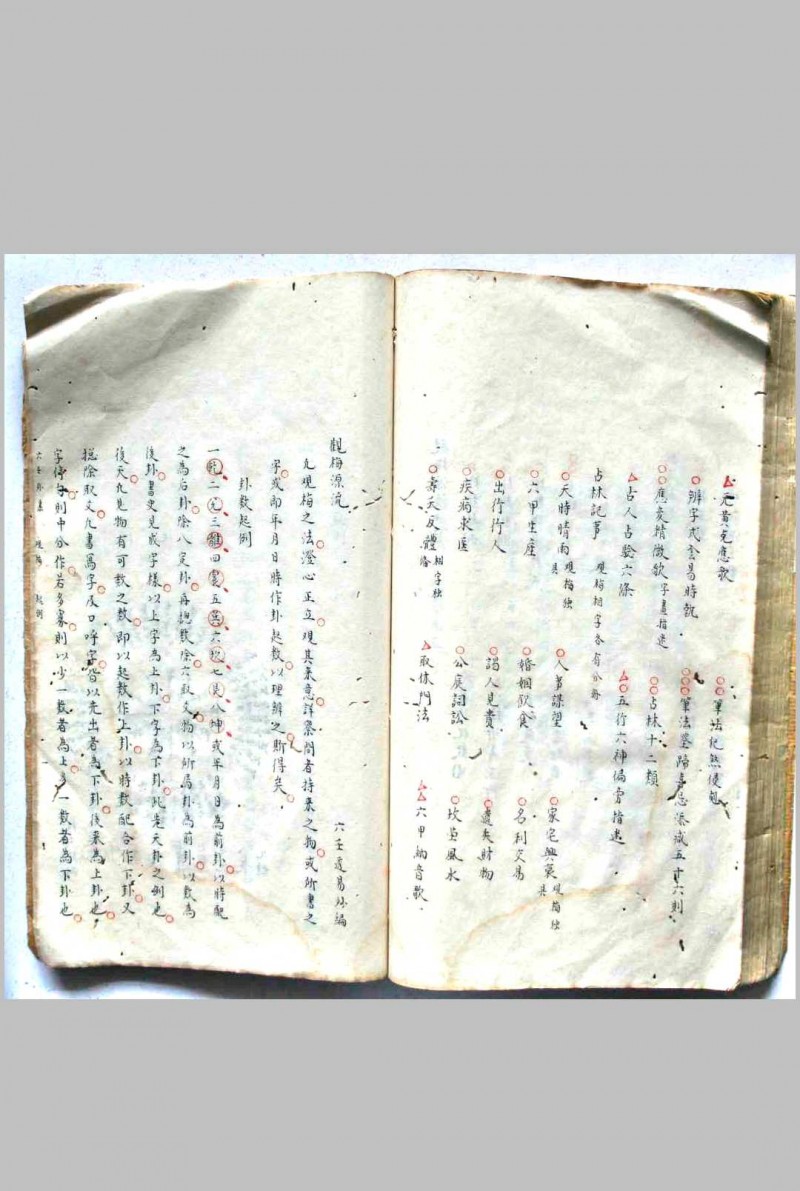 元黃克應歌
筆法
辨字式
筆法 五十六則
應爻精微歌 字畫指迷
占林十二類
占人占驗六條
五行六神偏旁指迷
占林記事 觀梅相字各有分每
天時晴雨 觀梅独具
人事謀望
家宅興衰 觀梅独具
六甲生產
婚姻飲食
名利交易
出行行人
謁人見貴
遺失財物
疾病求医
公庭詞訟
坟塋風水
壽夭 體 相字独
取休門法
六甲納音歌
觀梅源流
六壬 易 編
凡觀梅之法澄心正立觀其来意詳察問者持来之物或所書之
字或 年月日時作卦起数以理辨之斯得矣
卦数起例
一乾二兌三離四震五巽六坎七艮八坤或年月日為前卦以時配
之為后卦除八定卦再総数除六取爻物以所屬卦為前卦以数為
後卦書史見成字樣以上字為上卦下字為下卦此先天卦之例也
後天凡見物有可数之数即以起数作上卦以時数配合作下卦又
総除取爻凡書寫字及口呼字皆以先出者為下卦後来為上卦也
字 則中分作若多寡則以少一数者為上多一数者為下卦也
六壬 觀梅 起例